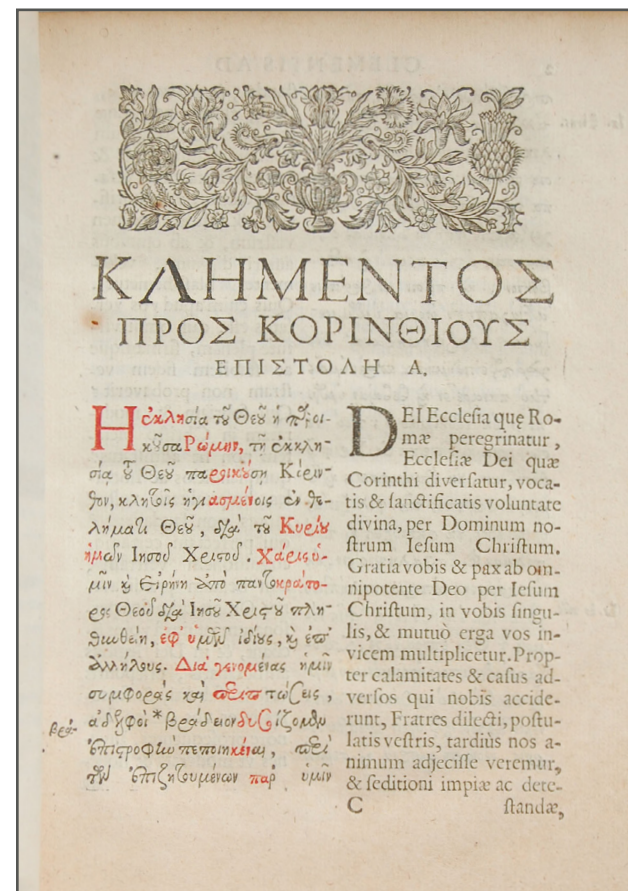 ΚΛΗΜΕΝΤΟΣ
ΠΡΟΣ ΚΟΡΙΝΘΙΟΥΣ
ΕΠΙΣΤΟΛΗ Α.
Η ἐκκλησία τοῦ Θεοῦ ἡ παροι-
κοῦσα Ῥώμην, τῇ ἐκκλη-
σίᾳ τοῦ Θεοῦ παροικούσῃ Κόριν-
θον, κλητοῖς ἡγιασμένοις ἐν θε-
λήματι Θεοῦ, διὰ τοῦ Κυρίου
ἡμῶν Ιησοῦ Χριστοῦ. Χάρις ὑ-
μῖν καὶ Εἰρήνη ἀπὸ παντοκράτο-
ρος Θεοῦ διὰ Ιησοῦ Χριστοῦ πλη-
θυνθείη, ἐφ' ὑμᾶς ἰδίως, καὶ ἐπ'
ἀλλήλους. Διὰ γενομένας ἡμῖν
συμφορὰς καὶ περιπτώσεις,
ἀδελφοὶ * βράδειον νομίζομεν
βρά-
ἐπιστροφὴν πεποιηκέναι, περὶ
τῶν ἐπιζητουμένων παρ' ὑμῖν
DEI Ecclesia quę Ro-
mæ peregrinatur,
Ecclesiæ Dei quæ
Corinthi diversatur, voca-
tis & sanctificatis voluntate
divina, per Dominum no-
strum Iesum Christum.
Gratia vobis & pax ab om-
nipotente Deo per Iesum
Christum, in vobis singu-
lis, & mutuò erga vos in-
vicem multiplicetur. Prop-
ter calamitates & casus ad-
versos qui nobis accide-
runt, Fratres dilecti, postu-
latis vestris, tardiùs nos a-
nimum adjecisse veremur,
& seditioni impiæ ac dete-
C standæ,